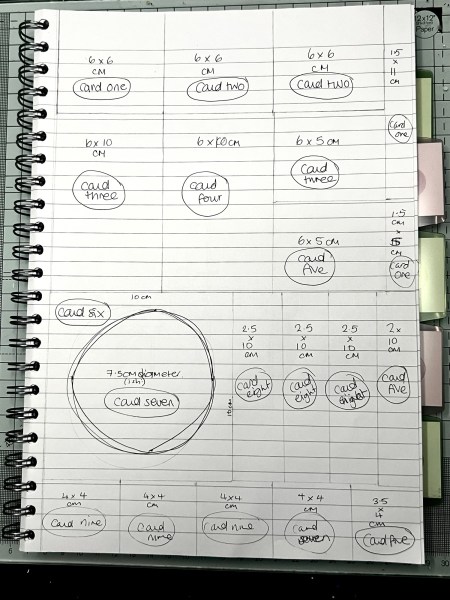 6 x 6
CM
Card one
6 x 6
CM
Card two
6 x 6
CM
Card two
1.5
x
11
cm
Card
one
6 x 10
CM
Card
three
6 x 10cm
Card
four
6 x 5cm
Card
three
6 x 5cm
Card
five
1.5
cm
x
5
cm
Card
one
10cm
Card six
7.5cm diameter
Card seven
10cm
2.5
x
10
cm
Card
eight
2.5
x
10
cm
Card
eight
2.5
x
10
cm
Card
eight
2x
10
cm
Card
five
4 x 4
cm
Card nine
4x4
cm
Card
nine
4x4
cm
Card nine
4 x 4
cm
Card
seven
3.5
x
4
cm
Card five
12"x12"
Paper